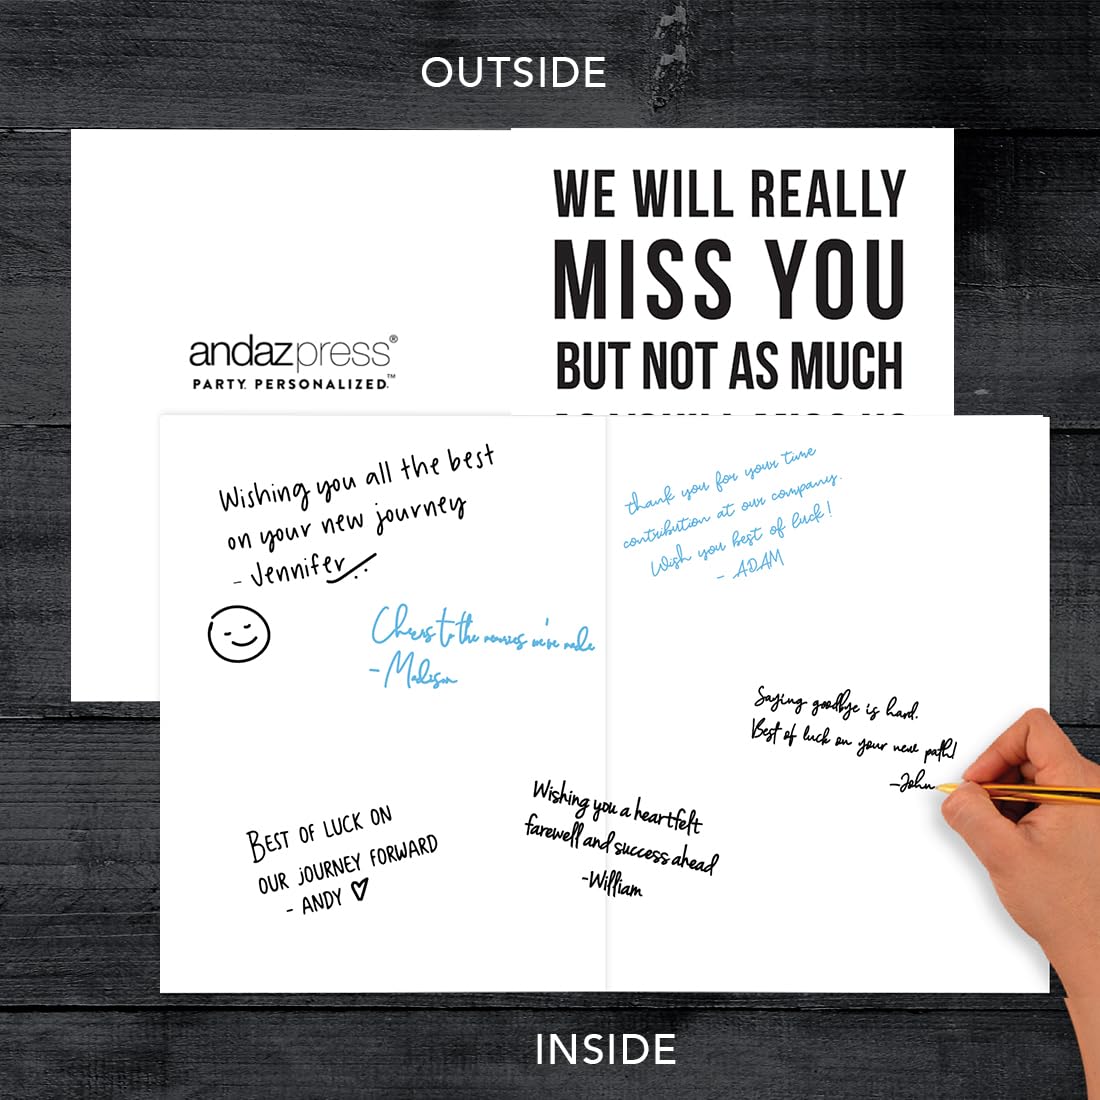 OUTSIDE
WE WILL REALLY
MISS YOU
BUT NOT AS MUCH
andazpress®
PARTY. PERSONALIZED.™
Wishing you all the best
on your new journey
- Jennifer
Cheers to the memories we've made
-Madison
thank you for your time
contribution at our company.
Wish you best of luck!
- ADAM
Saying goodbye is hard.
Best of luck on your new path!
-John
BEST OF LUCK ON
OUR JOURNEY FORWARD
- ANDY ♡
Wishing you a heartfelt
farewell and success ahead
-William
INSIDE